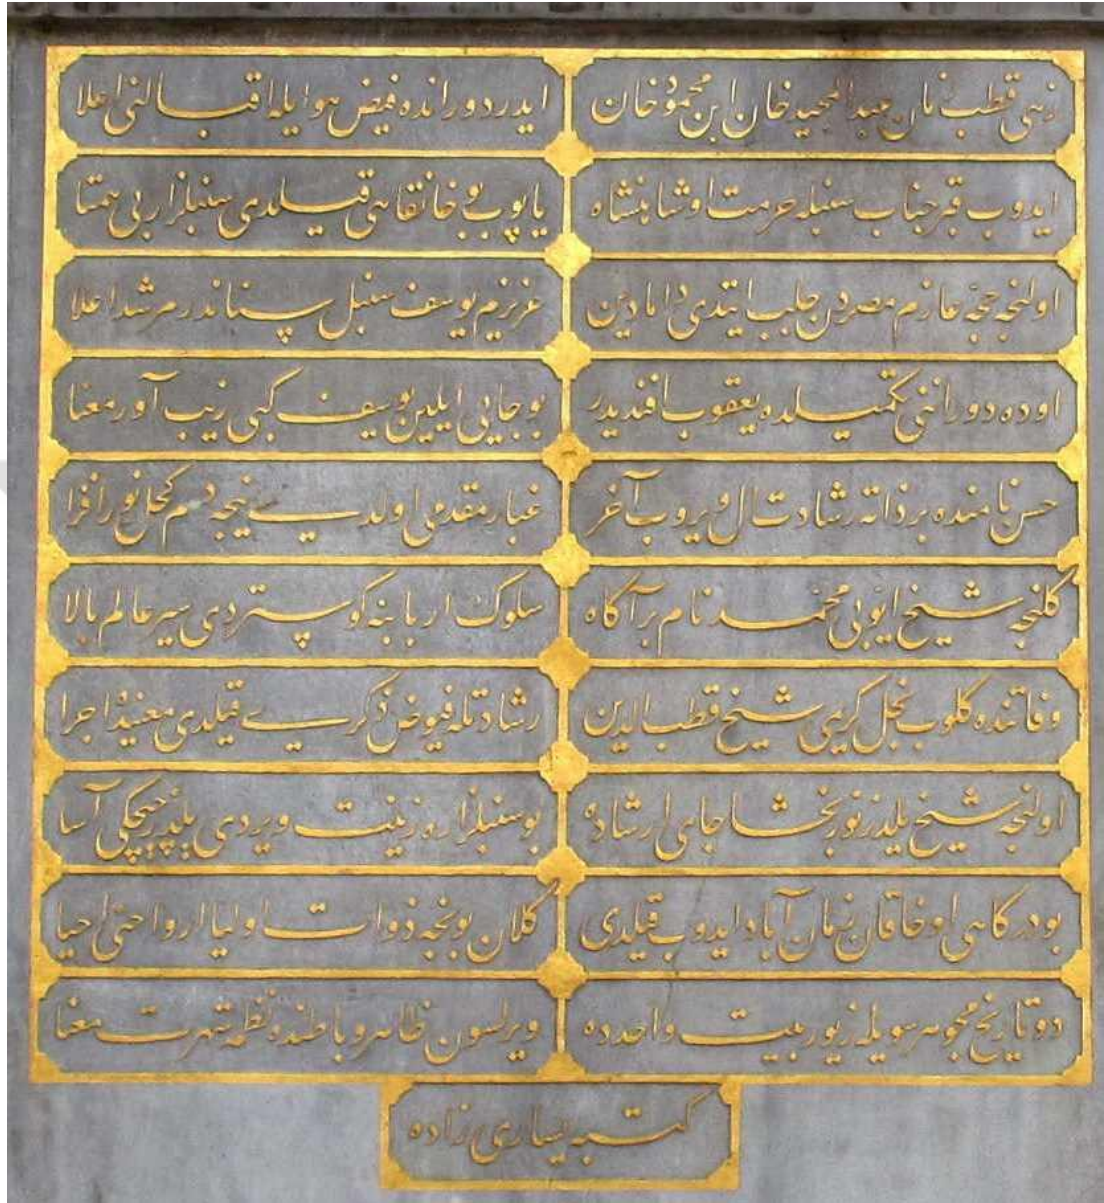 زهی قطب زمان عبدالمجید خان ابن محمود خان
ایدر دورانده فیض هو ایله اقبالنی اعلا
ایدوب قبر جناب سنبله حرمت او شاهنشاه
یاپوب بو خانقاهی قیلدی سنبلزار بی همتا
اولنجه حجه عازم مصردن جلب ایتدی دامادین
عزیزم یوسف سنبل سناندر مرشد اعلا
اوده دورانی تکمیلده یعقوب افندیدر
بو جایی ایلین یوسف کبی زیب آور معنا
حسن نامنده بر ذاته رشادت ال ویروب آخر
غبار مقدمی اولدی نیجه دم کحل نور افزا
کلنجه شیخ ایوبی محمد نام بر آکاه
سلوک اربابنه کوستردی سیر عالم بالا
وفاتنده کلوب نجل کریمی شیخ قطب الدین
رشادتله فیوض ذکری قیلدی اجرا
اولنجه شیخ یلدز نور بخشا جای ارشاده
بو سنبلزاره زینت ویردی یلدز چیچکی آسا
بو درکاهی او خاقان زمان آباد ایدوب قیلدی
کلان بونجه ذوات اولیا ارواحنی احیا
دو تاریخ مجوهر سویله زیور بیت واحدده
ویرلسون ظاهر و باطنده نظمه شهرت معنا
کتبه یساری زاده